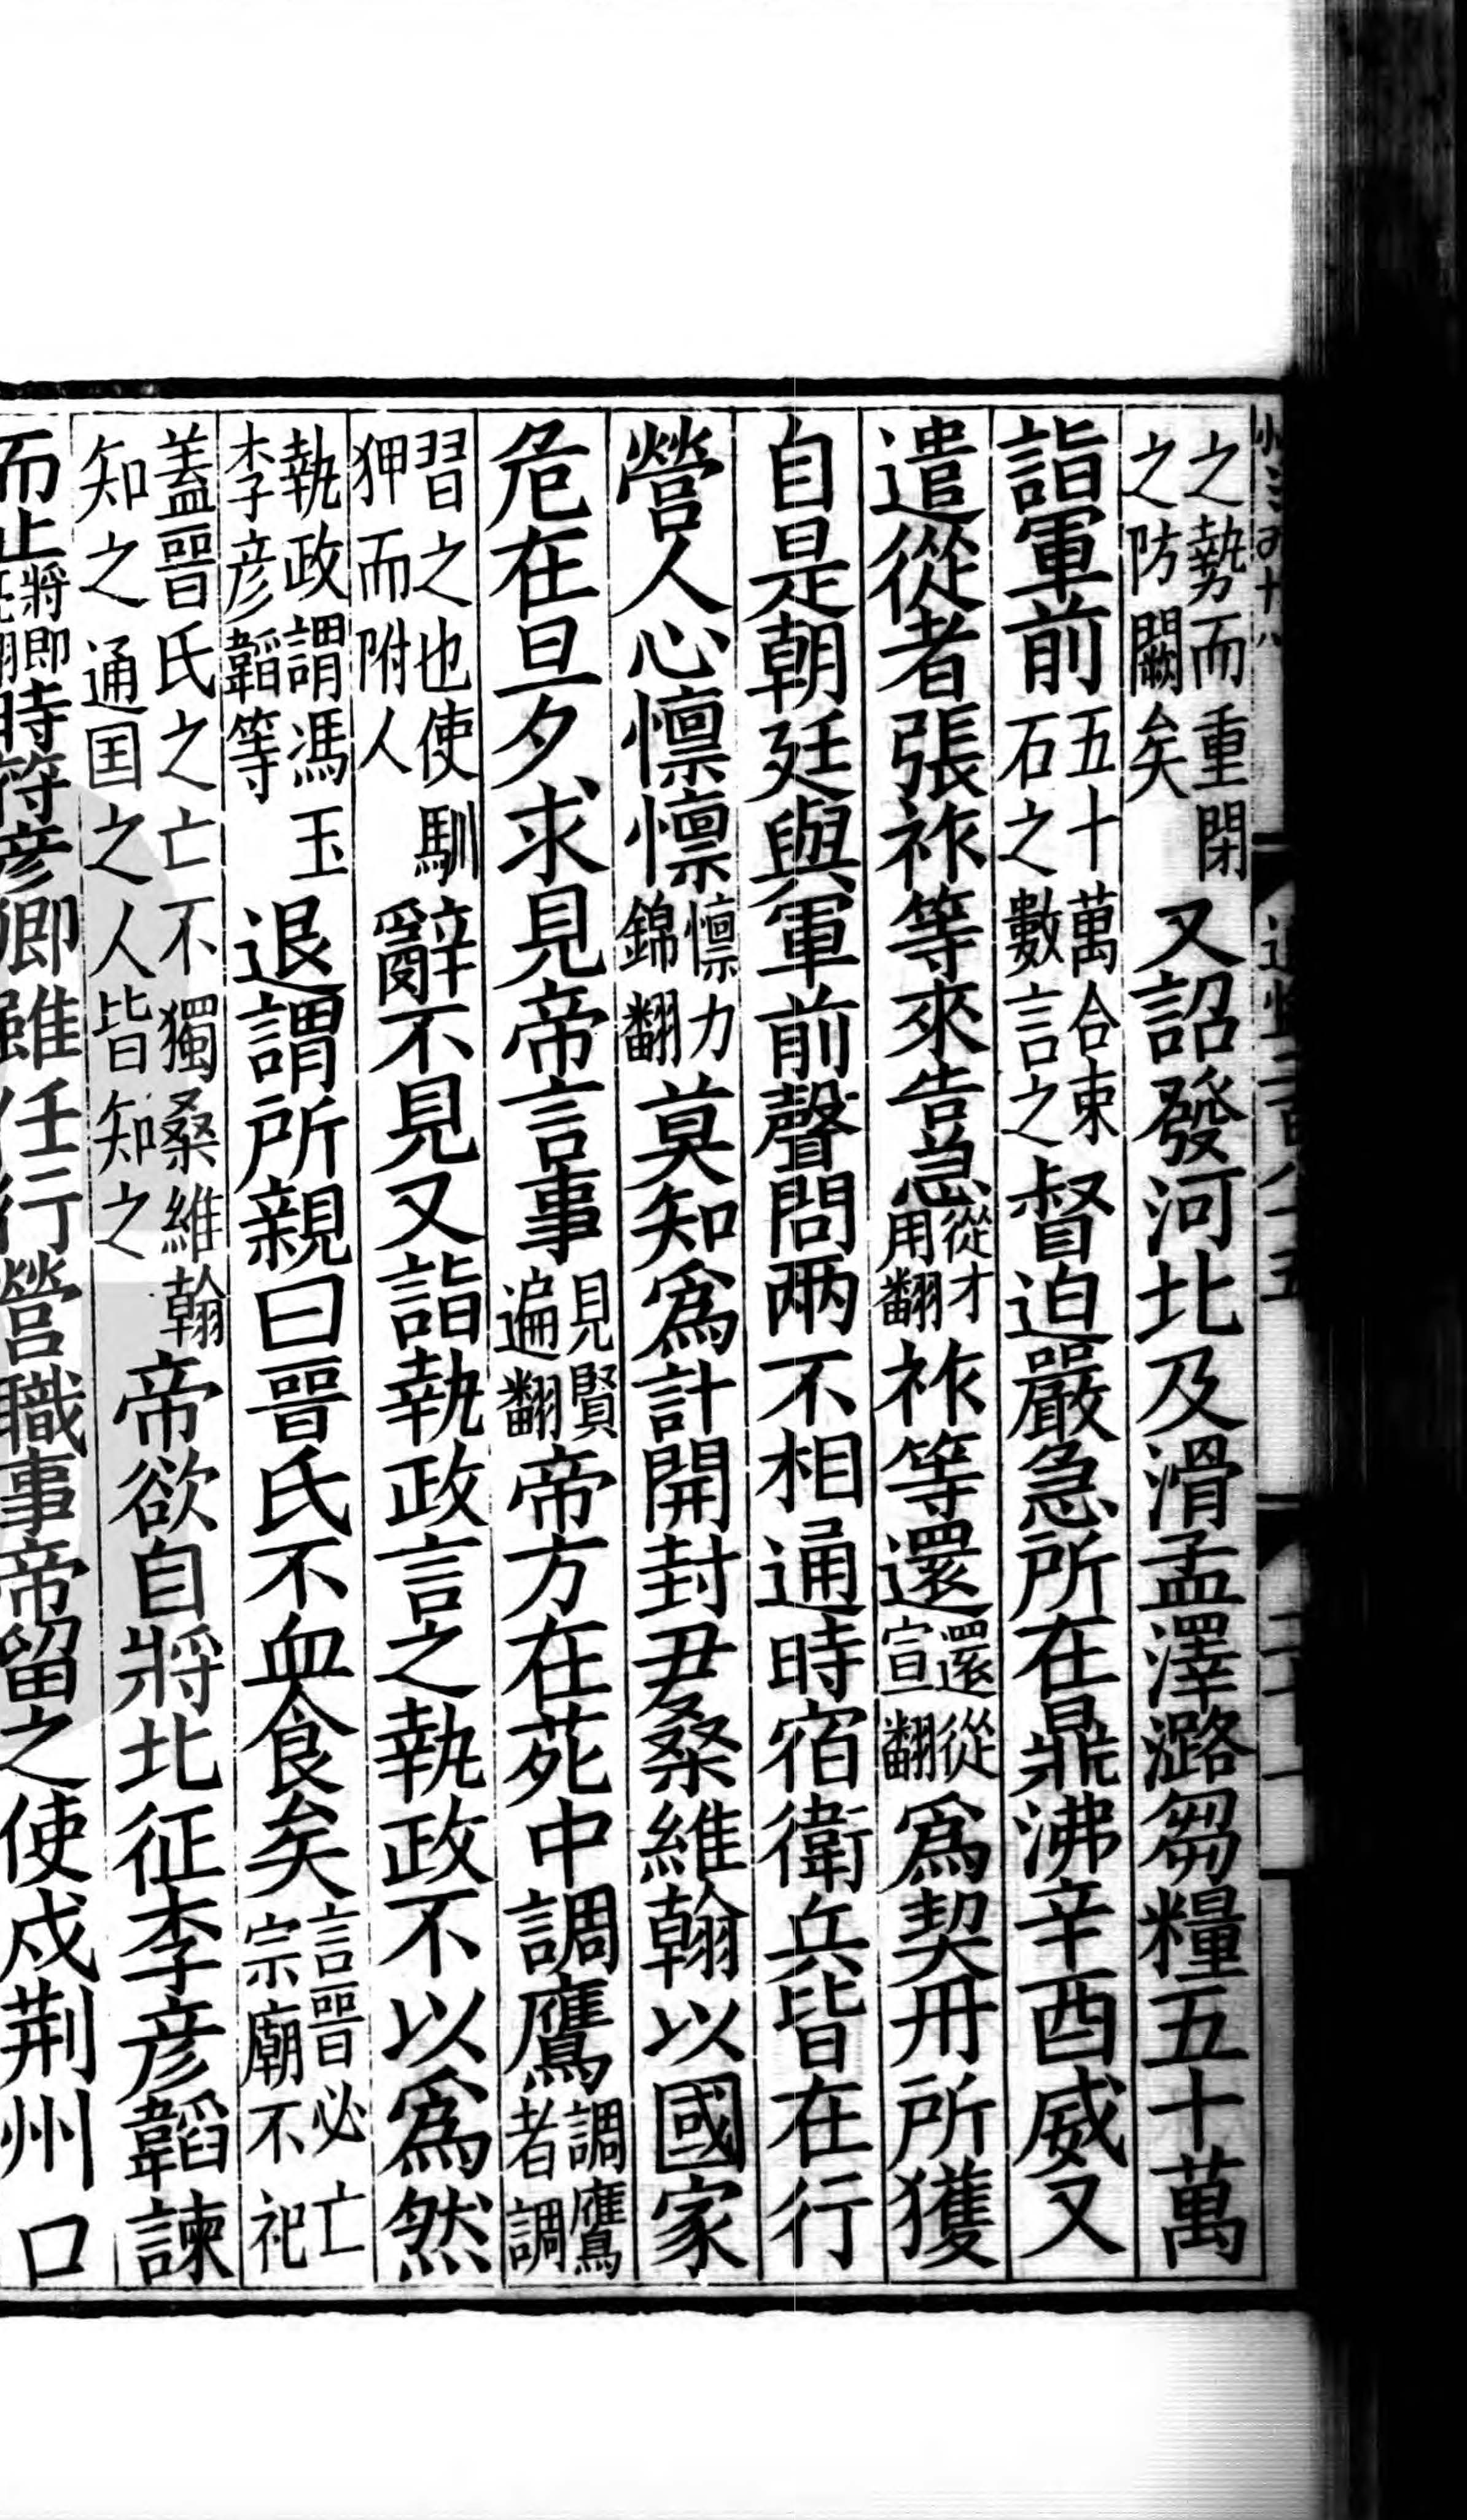 之勢而重閉之防闕矣又詔發河北及滑孟澤潞芻糧五十萬
詣軍前五十萬合束石之數言之督迫嚴急所在鼎沸辛酉威又
遣從者張祚等來告急從才用翻祚等還還從宣翻爲契丹所獲
自是朝廷與軍前聲問兩不相通時宿衛兵皆在行
營人心懍懍懍力錦翻莫知爲計開封尹桑維翰以國家
危在旦夕求見帝言事見賢遍翻帝方在苑中調鷹調鷹者調
習之也使馴狎而附人辭不見又詣執政言之執政不以爲然
執政謂馮玉李彦韜等退謂所親曰晉氏不血食矣言晉必亡宗廟不祀
蓋晉氏之亡不獨桑維翰知之通国之人皆知之帝欲自將北征李彦韜諫
而止將即翻時符彦卿雖任行營職事帝留之使戍荆州口